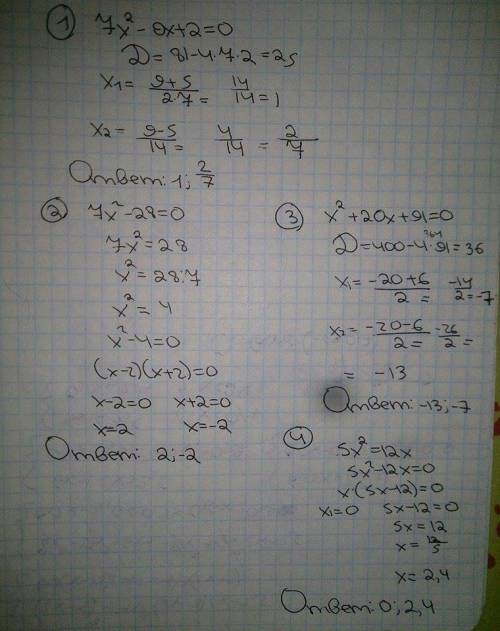 1) 7x² - 9x + 2 = 0
D = 81 - 4·7·2 = 25
x₁ = (9+5)/(2·7) = 14/14 = 1
x₂ = (9-5)/14 = 4/14 = 2/7
Ответ: 1; 2/7
2) 7x² - 28 = 0
7x² = 28
x² = 28:7
x² = 4
x² - 4 = 0
(x-2)(x+2) = 0
x-2=0 x+2=0
x=2 x=-2
Ответ: 2; -2
3) x² + 20x + 91 = 0
364
D = 400 - 4·91 = 36
x₁ = (-20+6)/2 = -14/2 = -7
x₂ = (-20-6)/2 = -26/2 =
= -13
Ответ: -13; -7
4) 5x² = 12x
5x² - 12x = 0
x·(5x-12) = 0
x₁=0 5x-12=0
5x = 12
x = 12/5
x = 2,4
Ответ: 0; 2,4